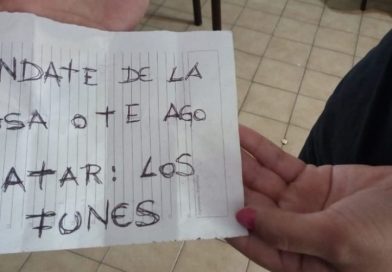 NDATE DE LA
SA O TE AGO
ATAR: LOS
FUNES